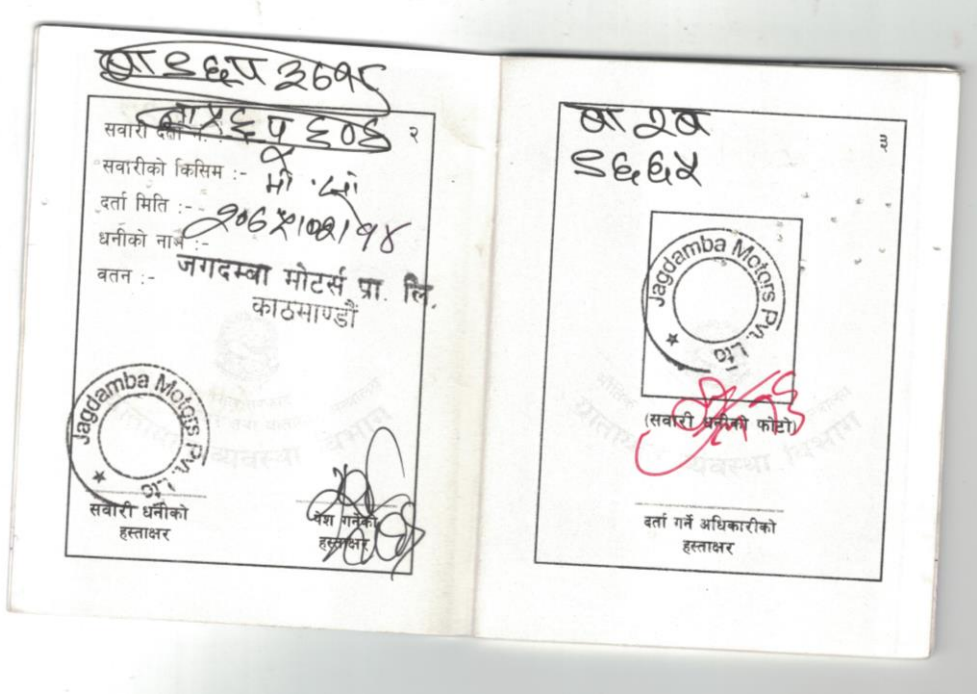 बा ९६प ३७१८
२
सवारी दर्ता नं. :
सवारीको किसिम :- मो.सा
दर्ता मिति :-
धनीको नाम :-
वतन :- जगदम्बा मोटर्स प्रा. लि.
काठमाण्डौं
Jagdamba Motors Pvt. Ltd
सवारी धनीको
हस्ताक्षर
पेश गर्नेको
हस्ताक्षर
बा २ब
९६६५
३
Jagdamba Motors Pvt. Ltd
(सवारी धनीको फोटो)
दर्ता गर्ने अधिकारीको
हस्ताक्षर